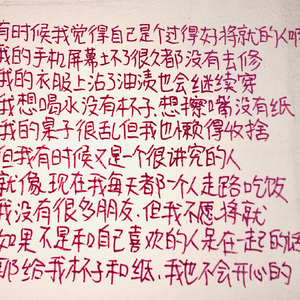 有时候我觉得自己是个过得好将就的人啊
我的手机屏幕坏了很久都没有去修
我的衣服上沾了油渍也会继续穿
我想喝水没有杯子,想擦嘴没有纸
我的桌子很乱但我也懒得收拾
但我有时候又是一个很讲究的人
就像现在我每天都一个人走路吃饭
我没有很多朋友,但我不愿将就
如果不是和自己喜欢的人是在一起的话
那给我杯子和纸,我也不会开心的